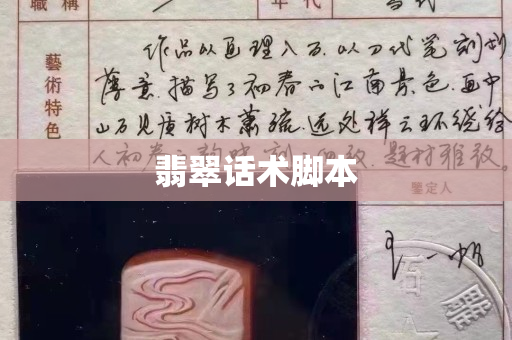 職稱
年代
藝術特色
作品以画理入石,以刀代笔刻划
薄意,描写了初春的江南景色,画中
山石 树木萧疏,远处祥云环绕给
人初春 题材雅致
翡翠话术脚本
鑒定人